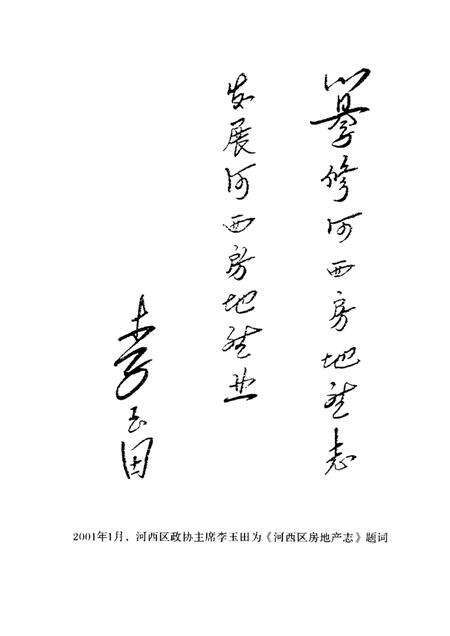 纂修河西房地产志
发展河西房地产业
李玉田
2001年1月，河西区政协主席李玉田为《河西区房地产志》题词